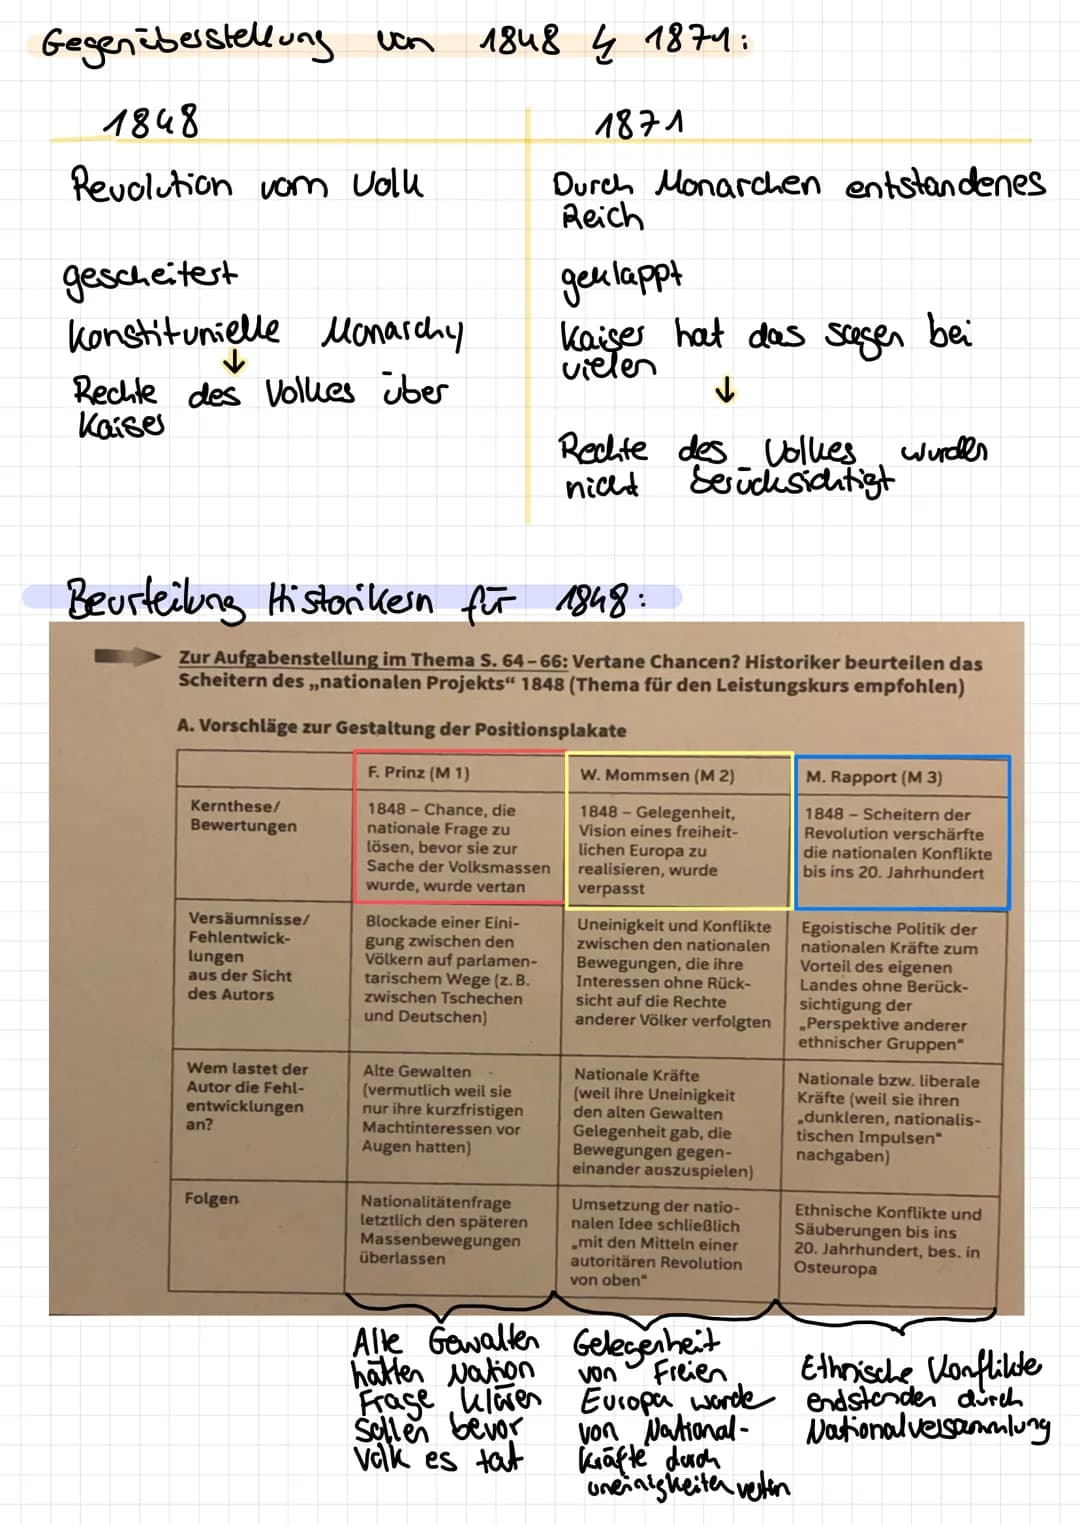 Gegenüberstellung von 1848 & 1871:
1848
Revolution vom Volk
gescheitert
Konstitunielle Monarchy
↓
Rechte des Volkes über
Kaiser
1871
Durch Monarchen entstandenes
Reich
geklappt
Kaiser hat das sagen bei
vielen
↓
Rechte des Volkes wurden
nicht berücksichtigt
Beurteilung Historikern für 1848:
Zur Aufgabenstellung im Thema S. 64–66: Vertane Chancen? Historiker beurteilen das
Scheitern des „nationalen Projekts“ 1848 (Thema für den Leistungskurs empfohlen)
A. Vorschläge zur Gestaltung der Positionsplakate
F. Prinz (M 1)
W. Mommsen (M 2)
M. Rapport (M 3)
Kernthese/
Bewertungen
1848 – Chance, die
nationale Frage zu
lösen, bevor sie zur
Sache der Volksmassen
wurde, wurde vertan
1848 – Gelegenheit,
Vision eines freiheit-
lichen Europa zu
realisieren, wurde
verpasst
1848 – Scheitern der
Revolution verschärfte
die nationalen Konflikte
bis ins 20. Jahrhundert
Versäumnisse/
Fehlentwick-
lungen
aus der Sicht
des Autors
Blockade einer Eini-
gung zwischen den
Völkern auf parlamen-
tarischem Wege (z. B.
zwischen Tschechen
und Deutschen)
Uneinigkeit und Konflikte
zwischen den nationalen
Bewegungen, die ihre
Interessen ohne Rück-
sicht auf die Rechte
anderer Völker verfolgten
Egoistische Politik der
nationalen Kräfte zum
Vorteil des eigenen
Landes ohne Berück-
sichtigung der
„Perspektive anderer
ethnischer Gruppen“
Wem lastet der
Autor die Fehl-
entwicklungen
an?
Alte Gewalten
(vermutlich weil sie
nur ihre kurzfristigen
Machtinteressen vor
Augen hatten)
Nationale Kräfte
(weil ihre Uneinigkeit
den alten Gewalten
Gelegenheit gab, die
Bewegungen gegen-
einander auszuspielen)
Nationale bzw. liberale
Kräfte (weil sie ihren
„dunkleren, nationalis-
tischen Impulsen“
nachgaben)
Folgen
Nationalitätenfrage
letztlich den späteren
Massenbewegungen
überlassen
Umsetzung der natio-
nalen Idee schließlich
„mit den Mitteln einer
autoritären Revolution
von oben“
Ethnische Konflikte und
Säuberungen bis ins
20. Jahrhundert, bes. in
Osteuropa
Alte Gewalten
hätten Nation
Frage klären
sollen bevor
Volk es tat
Gelegenheit
von Freien
Europa wurde
von National-
kräfte durch
uneinigkeiten
Ethnische Konflikte
endstanden durch
Nationalversammlung